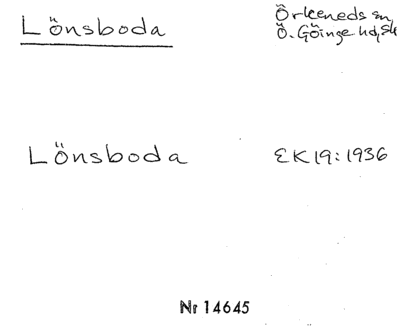 Lönsboda
Örkeneds sn,
Ö. Göinge hd, Sk
Lönsboda
EK 19:1936
Nr 14645